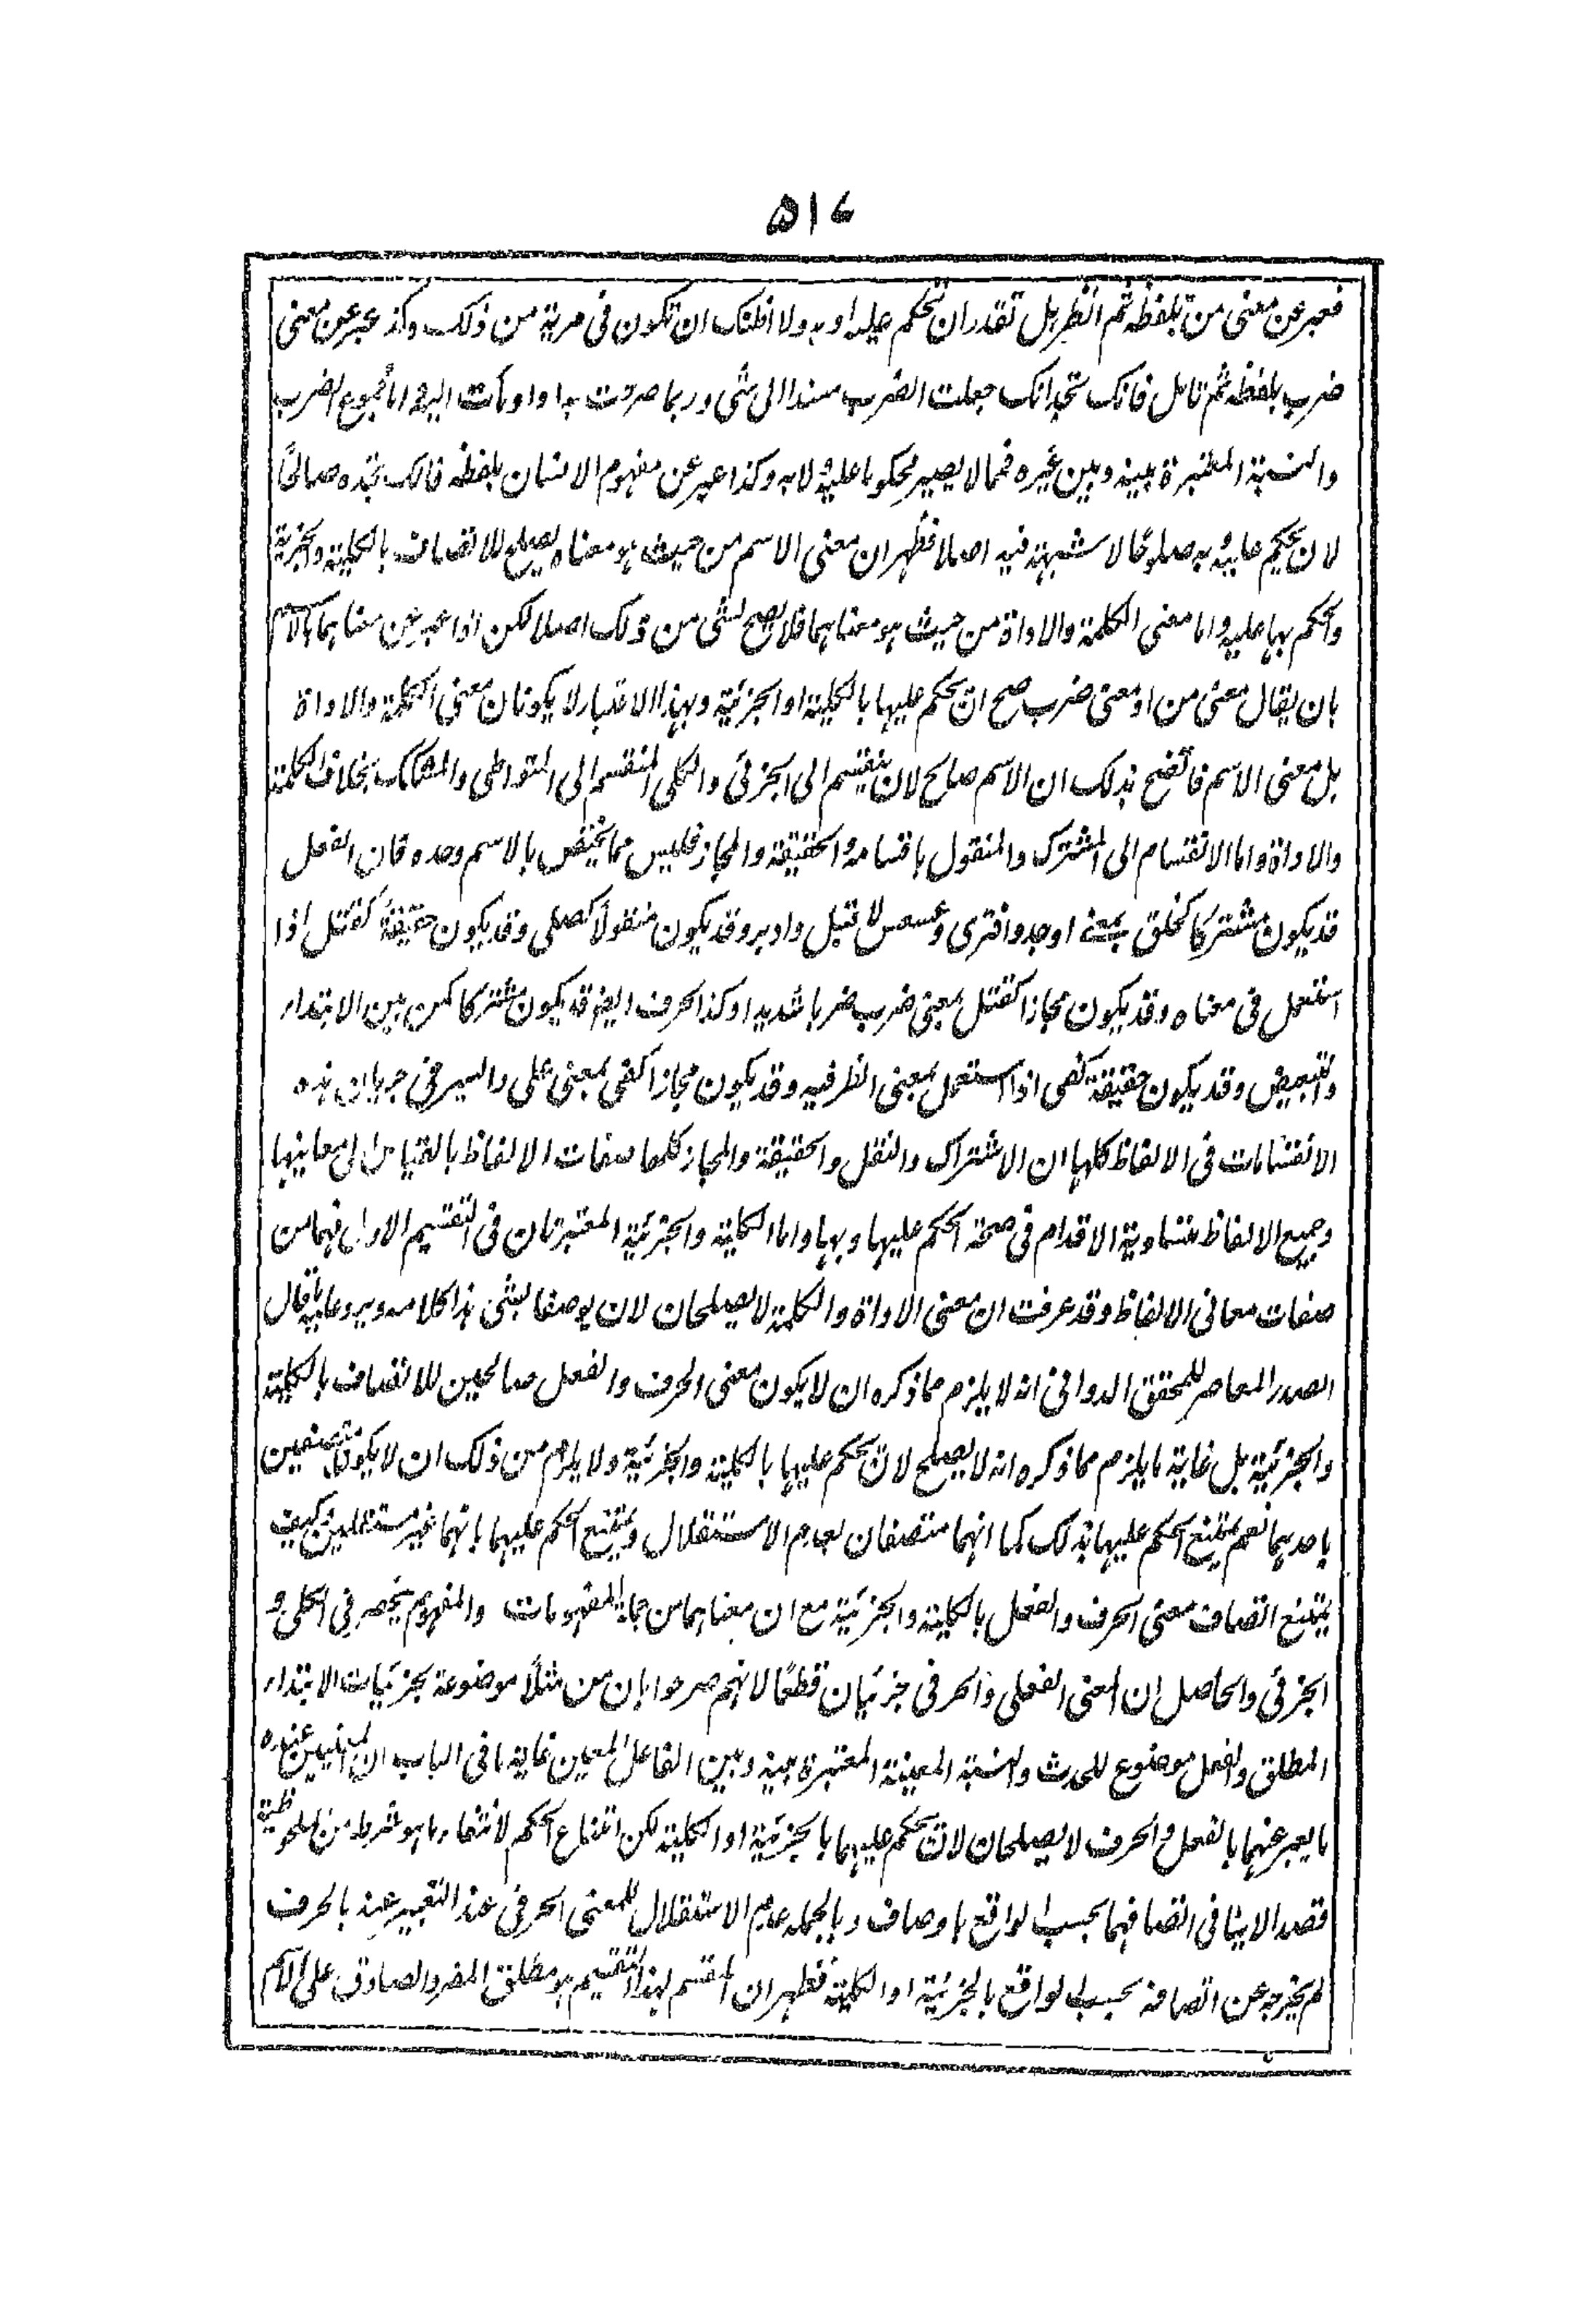 ۵۱۷
فعبر عن معنى من بلفظه ثم انظر بل تقدر ان تحكم عليه او به ولا اظنك ان تكون فى مرية من ذلك وكذا عبر عن معنى
ضرب بلفظه ثم تامل فانك تجد انك جعلت الضرب مسندا الى شئ وربما صرحت به او اومات اليه واما مجموع الضرب
والنسبة المعتبرة بينه وبين غيره فمما لا يصير محكوما عليه ولا به وكذا عبر عن مفهوم الانسان بلفظه فانك تجده صالحًا
لان يحكم عليه وبه صلوحًا لا شبهة فيه اصلا فظهر ان معنى الاسم من حيث هو معناه يصلح للاتصاف بالكلية والجزئية
والحكم بها عليه واما معنى الكلمة والاداة من حيث هو معناهما فلا يصح لشئ من ذلك اصلا لكن اذا عبر عن معناهما بالاسم
بان يقال معنى من او معنى ضرب صح ان يحكم عليها بالكلية او الجزئية وبهذا الاعتبار لا يكونان معنى الكلمة والاداة
بل معنى الاسم فاتضح بذلك ان الاسم صالح لان ينقسم الى الجزئى والكلى المنقسم الى المتواطى والمشكك بخلاف الكلمة
والاداة واما الانقسام الى المشترك والمنقول باقسامه والحقيقة والمجاز فليس مما يختص بالاسم وحده فان الفعل
قد يكون مشتركا كخلق بمعنى اوجد وافترى وعسعس لاقبل وادبر وقد يكون منقولًا كصلى وقد يكون حقيقةً كقتل اذا
استعمل فى معناه وقد يكون مجازا كقتل بمعنى ضرب ضربا شديدا وكذا الحرف ايضا قد يكون مشتركا كمن بين الابتداء
والتبعيض وقد يكون حقيقة كفى اذا استعمل بمعنى الظرفيه وقد يكون مجازا كفى بمعنى على والسر فى جريان هذه
الانقسامات فى الالفاظ كلها ان الاشتراك والنقل والحقيقة والمجاز كلها صفات الالفاظ بالقياس الى معانيها
وجميع الالفاظ متساوية الاقدام فى صحة الحكم عليها وبها واما الكلية والجزئية المعتبرتان فى التقسيم الاول فهما من
صفات معانى الالفاظ وقد عرفت ان معنى الاداة والكلمة لا يصلحان لان يوصفا بشئ هذا كلامه ويرد عليه ما قال
الصدر المعاصر للمحقق الدوانى انه لا يلزم مما ذكره ان لا يكون معنى الحرف والفعل صالحين للاتصاف بالكلية
والجزئية بل غاية ما يلزم مما ذكره انه لا يصلح لان يحكم عليها بالكلية والجزئية ولا يلزم من ذلك ان لا يكونا متصفين
باحدهما نعم يمتنع الحكم عليها بذلك كما انهما متصفان بعدم الاستقلال ويمتنع الحكم عليهما بانهما غير مستقلين وكيف
يمتنع اتصاف معنى الحرف والفعل بالكلية والجزئية مع ان معناهما من جملة المفهومات والمفهوم ينحصر فى الكلى و
الجزئى والحاصل ان المعنى الفعلى والحرفى جزئيان قطعًا لانهم صرحوا بان من مثلًا موضوعة لجزئيات الابتداء
المطلق والفعل موضوع للحدث والنسبة المعينة المعتبرة بينه وبين الفاعل المعين غاية ما فى الباب ان المعنيين عند
ما يعبر عنهما بالفعل والحرف لا يصلحان لان يحكم عليهما بالجزئية او الكلية لكن امتناع الحكم لانتفاء ما هو شرطه من الملحوظية
قصدا لا ينافى اتصافهما بحسب الواقع باوصاف وبالجمله عدم الاستقلال للمعنى الحرفى عند التعبير عنه بالحرف
لم يخرجه عن اتصافه بحسب الواقع بالجزئية او الكلية فظهر ان المقسم لهذا التقسيم هو مطلق المفرد الصادق على الاسم